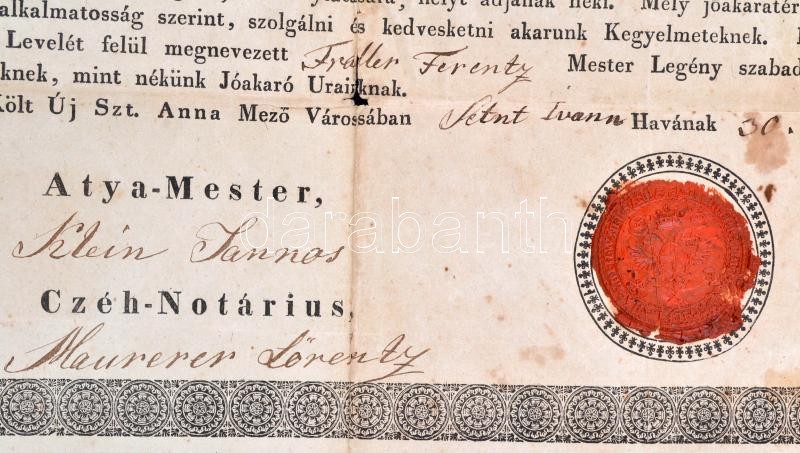 helyt adjanak néki. Mely jóakaratér
alkalmatosság szerint, szolgálni és kedvesketni akarunk Kegyelmeteknek.
Levelét felül megnevezett Fraller Ferentz Mester Legény szabad
knek, mint nékünk Jóakaró Urainknak.
Költ Új Szt. Anna Mező Várossában Setnt Ivann Havának 30.
Atya-Mester,
Klein Jannos
Czéh-Notárius,
Maurerer Lörentz
darabanth